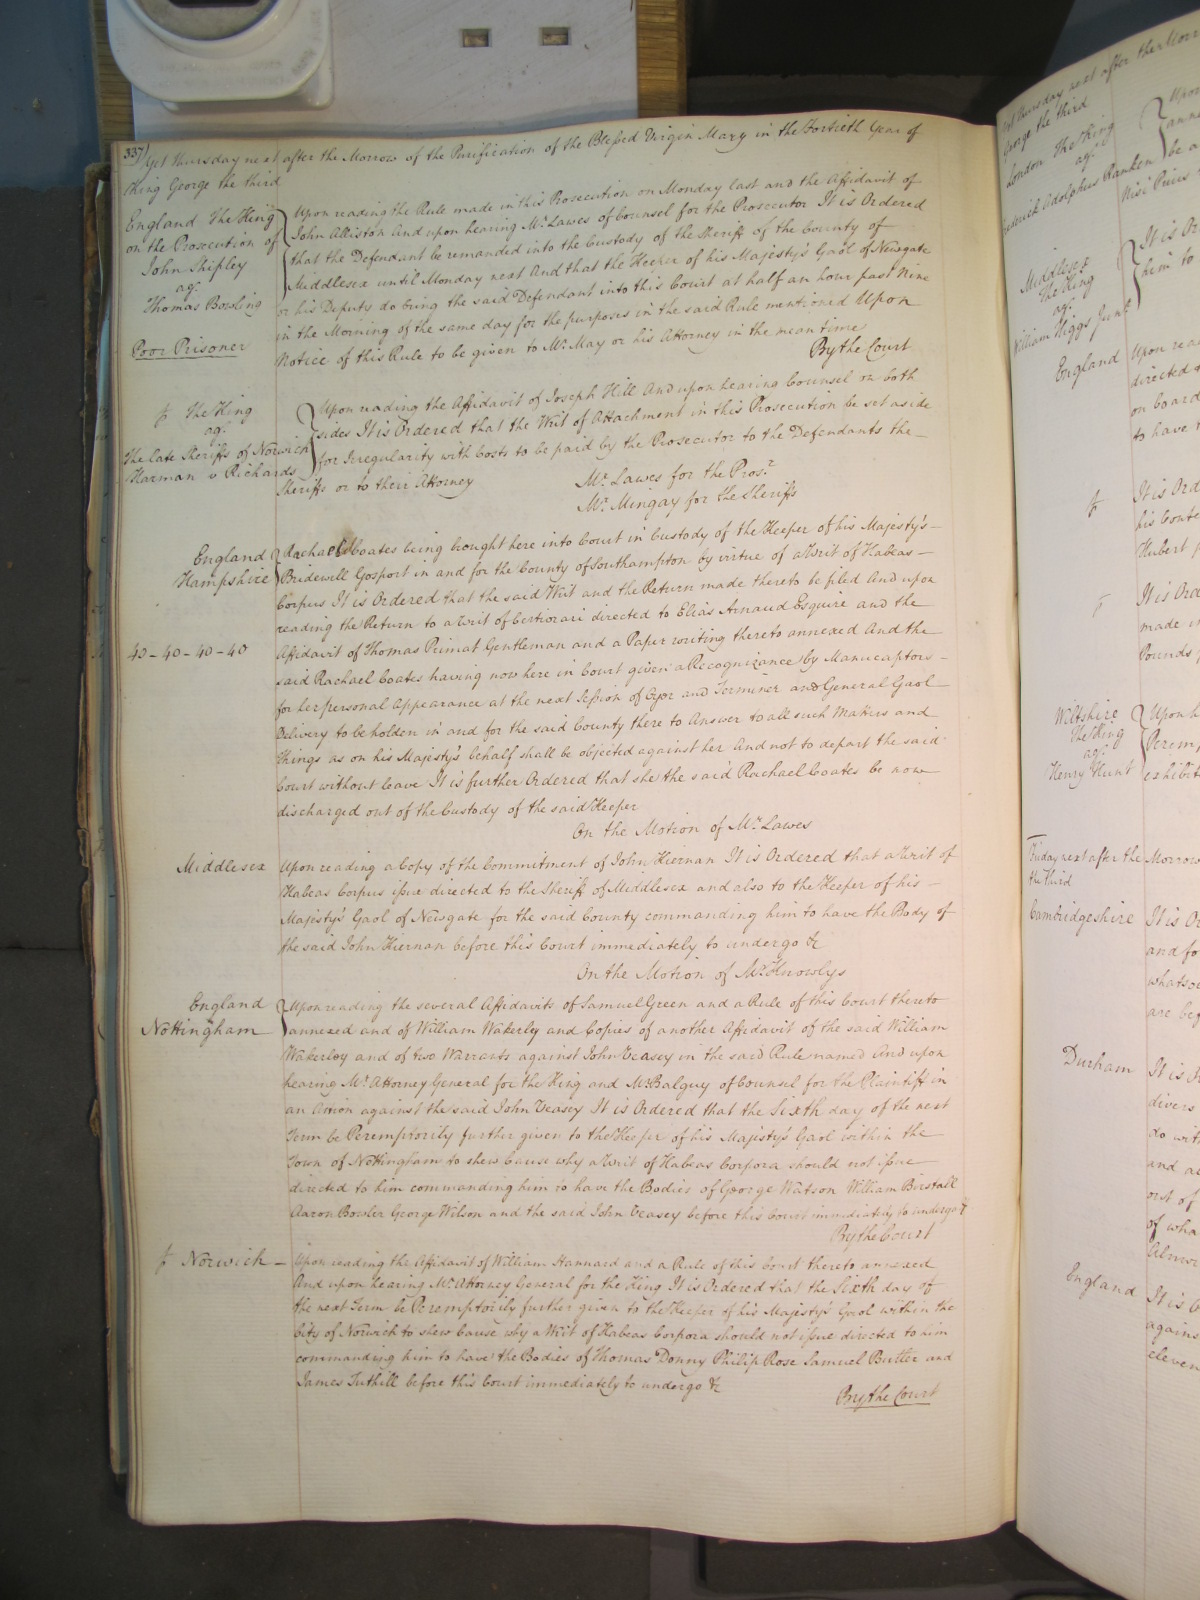 337
Yet Thursday next after the Morrow of the Purification of the Blessed Virgin Mary in the Fortieth Year of
King George the third
England The King
on the Prosecution of
John Shipley
agt
Thomas Bowling
Poor Prisoner
Upon reading the Rule made in this Prosecution on Monday last and the Affidavit of
John Alliston And upon hearing Mr. Lawes of Counsel for the Prosecutor It is Ordered
that the Defendant be remanded into the Custody of the Sheriff of the County of
Middlesex until Monday next And that the Keeper of his Majesty's Gaol of Newgate
or his Deputy do bring the said Defendant into this Court at half an hour past Nine
in the Morning of the same day for the purposes in the said Rule mentioned Upon
Notice of this Rule to be given to Mr. May or his Attorney in the mean time
By the Court
The King
agt
The late Sheriffs of Norwich
Harman v Richards
Upon reading the Affidavit of Joseph Hill And upon hearing Counsel on both
sides It is Ordered that the Writ of Attachment in this Prosecution be set aside
for Irregularity with Costs to be paid by the Prosecutor to the Defendants the
Sheriffs or to their Attorney
Mr. Lawes for the Prosr.
Mr. Mingay for the Sheriffs
England
Hampshire
40-40-40-40
Rachael Coates being brought here into Court in Custody of the Keeper of his Majesty's
Bridewell Gosport in and for the County of Southampton by virtue of a Writ of Habeas
Corpus It is Ordered that the said Writ and the Return made thereto be filed And upon
reading the Return to a Writ of Certiorari directed to Elias Arnaud Esquire and the
Affidavit of Thomas Primat Gentleman and a Paper writing thereto annexed And the
said Rachael Coates having now here in Court given a Recognizance by Manucaptors
for her personal Appearance at the next Session of Oyer and Terminer and General Gaol
Delivery to be holden in and for the said County there to Answer to all such Matters and
things as on his Majesty's behalf shall be objected against her And not to depart the said
Court without leave It is further Ordered that she the said Rachael Coates be now
discharged out of the Custody of the said Keeper
On the Motion of Mr. Lawes
Middlesex
Upon reading a Copy of the Commitment of John Kiernan It is Ordered that a Writ of
Habeas Corpus issue directed to the Sheriff of Middlesex and also to the Keeper of his
Majesty's Gaol of Newgate for the said County commanding him to have the Body of
the said John Kiernan before this Court immediately to undergo &c
On the Motion of Mr. Knowlys
England
Nottingham
Upon reading the several Affidavits of Samuel Green and a Rule of this Court thereto
annexed and of William Wakerley and Copies of another Affidavit of the said William
Wakerley and of two Warrants against John Veasey in the said Rule named And upon
hearing Mr. Attorney General for the King and Mr. Balguy of Counsel for the Plaintiff in
an Action against the said John Veasey It is Ordered that the Sixth day of the next
Term be Peremptorily further given to the Keeper of his Majesty's Gaol within the
Town of Nottingham to shew Cause why a Writ of Habeas Corpora should not issue
directed to him commanding him to have the Bodies of George Watson William Birstall
Aaron Bowler George Wilson and the said John Veasey before this Court immediately to undergo &c
By the Court
Norwich
Upon reading the Affidavit of William Hannard and a Rule of this Court thereto annexed
And upon hearing Mr. Attorney General for the King It is Ordered that the Sixth day of
the next Term be Peremptorily further given to the Keeper of his Majesty's Gaol within the
City of Norwich to shew Cause why a Writ of Habeas Corpora should not issue directed to him
commanding him to have the Bodies of Thomas Donny Philip Rose Samuel Butter and
James Tuthill before this Court immediately to undergo &c
By the Court
Yet Thursday next after the Morrow
George the third
London The King
agt
Adolphus Ranken
Upon
be a
Nisi Prius
Middlesex
The King
agt
William Higgs Junr
It is Or
him to
England
Upon rea
directed
on board
to have
It is Ord
his Conte
Hubert
It is Orde
made i
Pounds
Wiltshire
The King
agt
Henry Hunt
Upon h
Peremp
exhibit
Friday next after the Morrow
the third
Cambridgeshire
It is Or
and fo
whatso
are bef
Durham
It is O
divers
do wit
and a
out of
of wha
Almi
England
It is O
agains
eleven